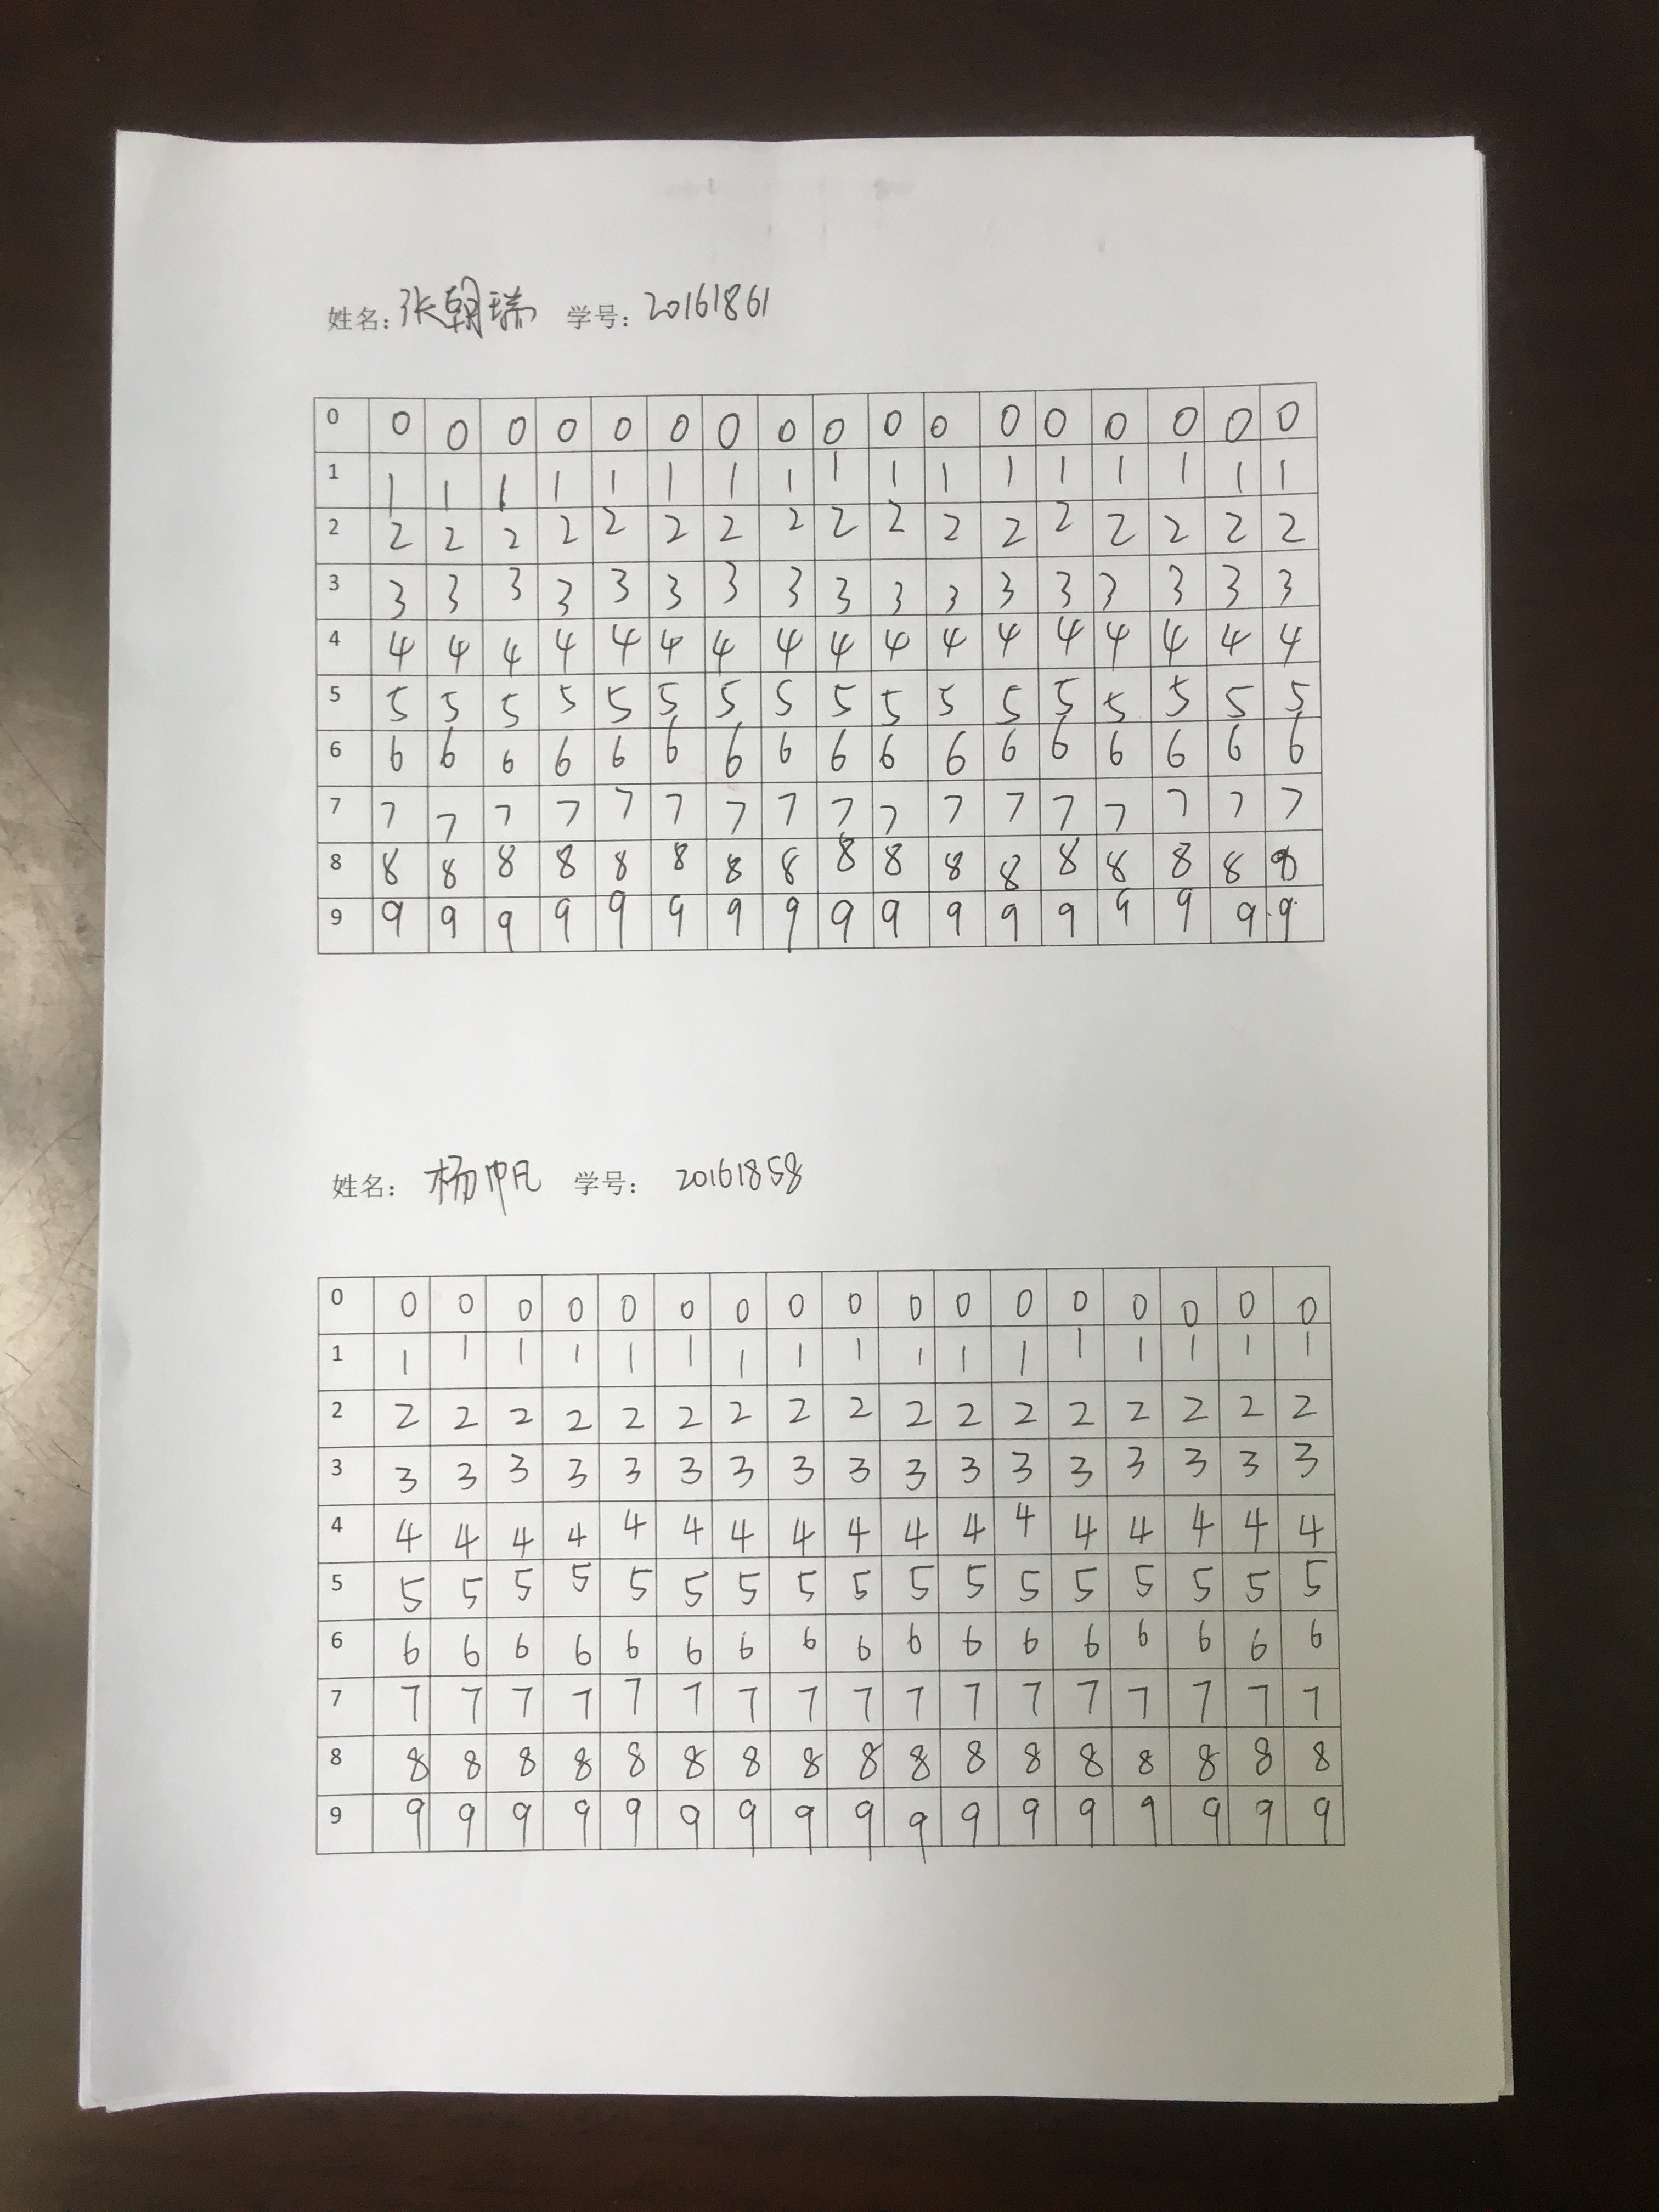 姓名：张朝瑞 学号：20161861
0 0 0 0 0 0 0 0 0 0 0 0 0 0 0 0 0 0
1 1 1 1 1 1 1 1 1 1 1 1 1 1 1 1 1 1
2 2 2 2 2 2 2 2 2 2 2 2 2 2 2 2 2 2
3 3 3 3 3 3 3 3 3 3 3 3 3 3 3 3 3 3
4 4 4 4 4 4 4 4 4 4 4 4 4 4 4 4 4 4
5 5 5 5 5 5 5 5 5 5 5 5 5 5 5 5 5 5
6 6 6 6 6 6 6 6 6 6 6 6 6 6 6 6 6 6
7 7 7 7 7 7 7 7 7 7 7 7 7 7 7 7 7 7
8 8 8 8 8 8 8 8 8 8 8 8 8 8 8 8 8 8
9 9 9 9 9 9 9 9 9 9 9 9 9 9 9 9 9 9
姓名： 杨帆 学号： 20161858
0 0 0 0 0 0 0 0 0 0 0 0 0 0 0 0 0 0
1 1 1 1 1 1 1 1 1 1 1 1 1 1 1 1 1 1
2 2 2 2 2 2 2 2 2 2 2 2 2 2 2 2 2 2
3 3 3 3 3 3 3 3 3 3 3 3 3 3 3 3 3 3
4 4 4 4 4 4 4 4 4 4 4 4 4 4 4 4 4 4
5 5 5 5 5 5 5 5 5 5 5 5 5 5 5 5 5 5
6 6 6 6 6 6 6 6 6 6 6 6 6 6 6 6 6 6
7 7 7 7 7 7 7 7 7 7 7 7 7 7 7 7 7 7
8 8 8 8 8 8 8 8 8 8 8 8 8 8 8 8 8 8
9 9 9 9 9 9 9 9 9 9 9 9 9 9 9 9 9 9